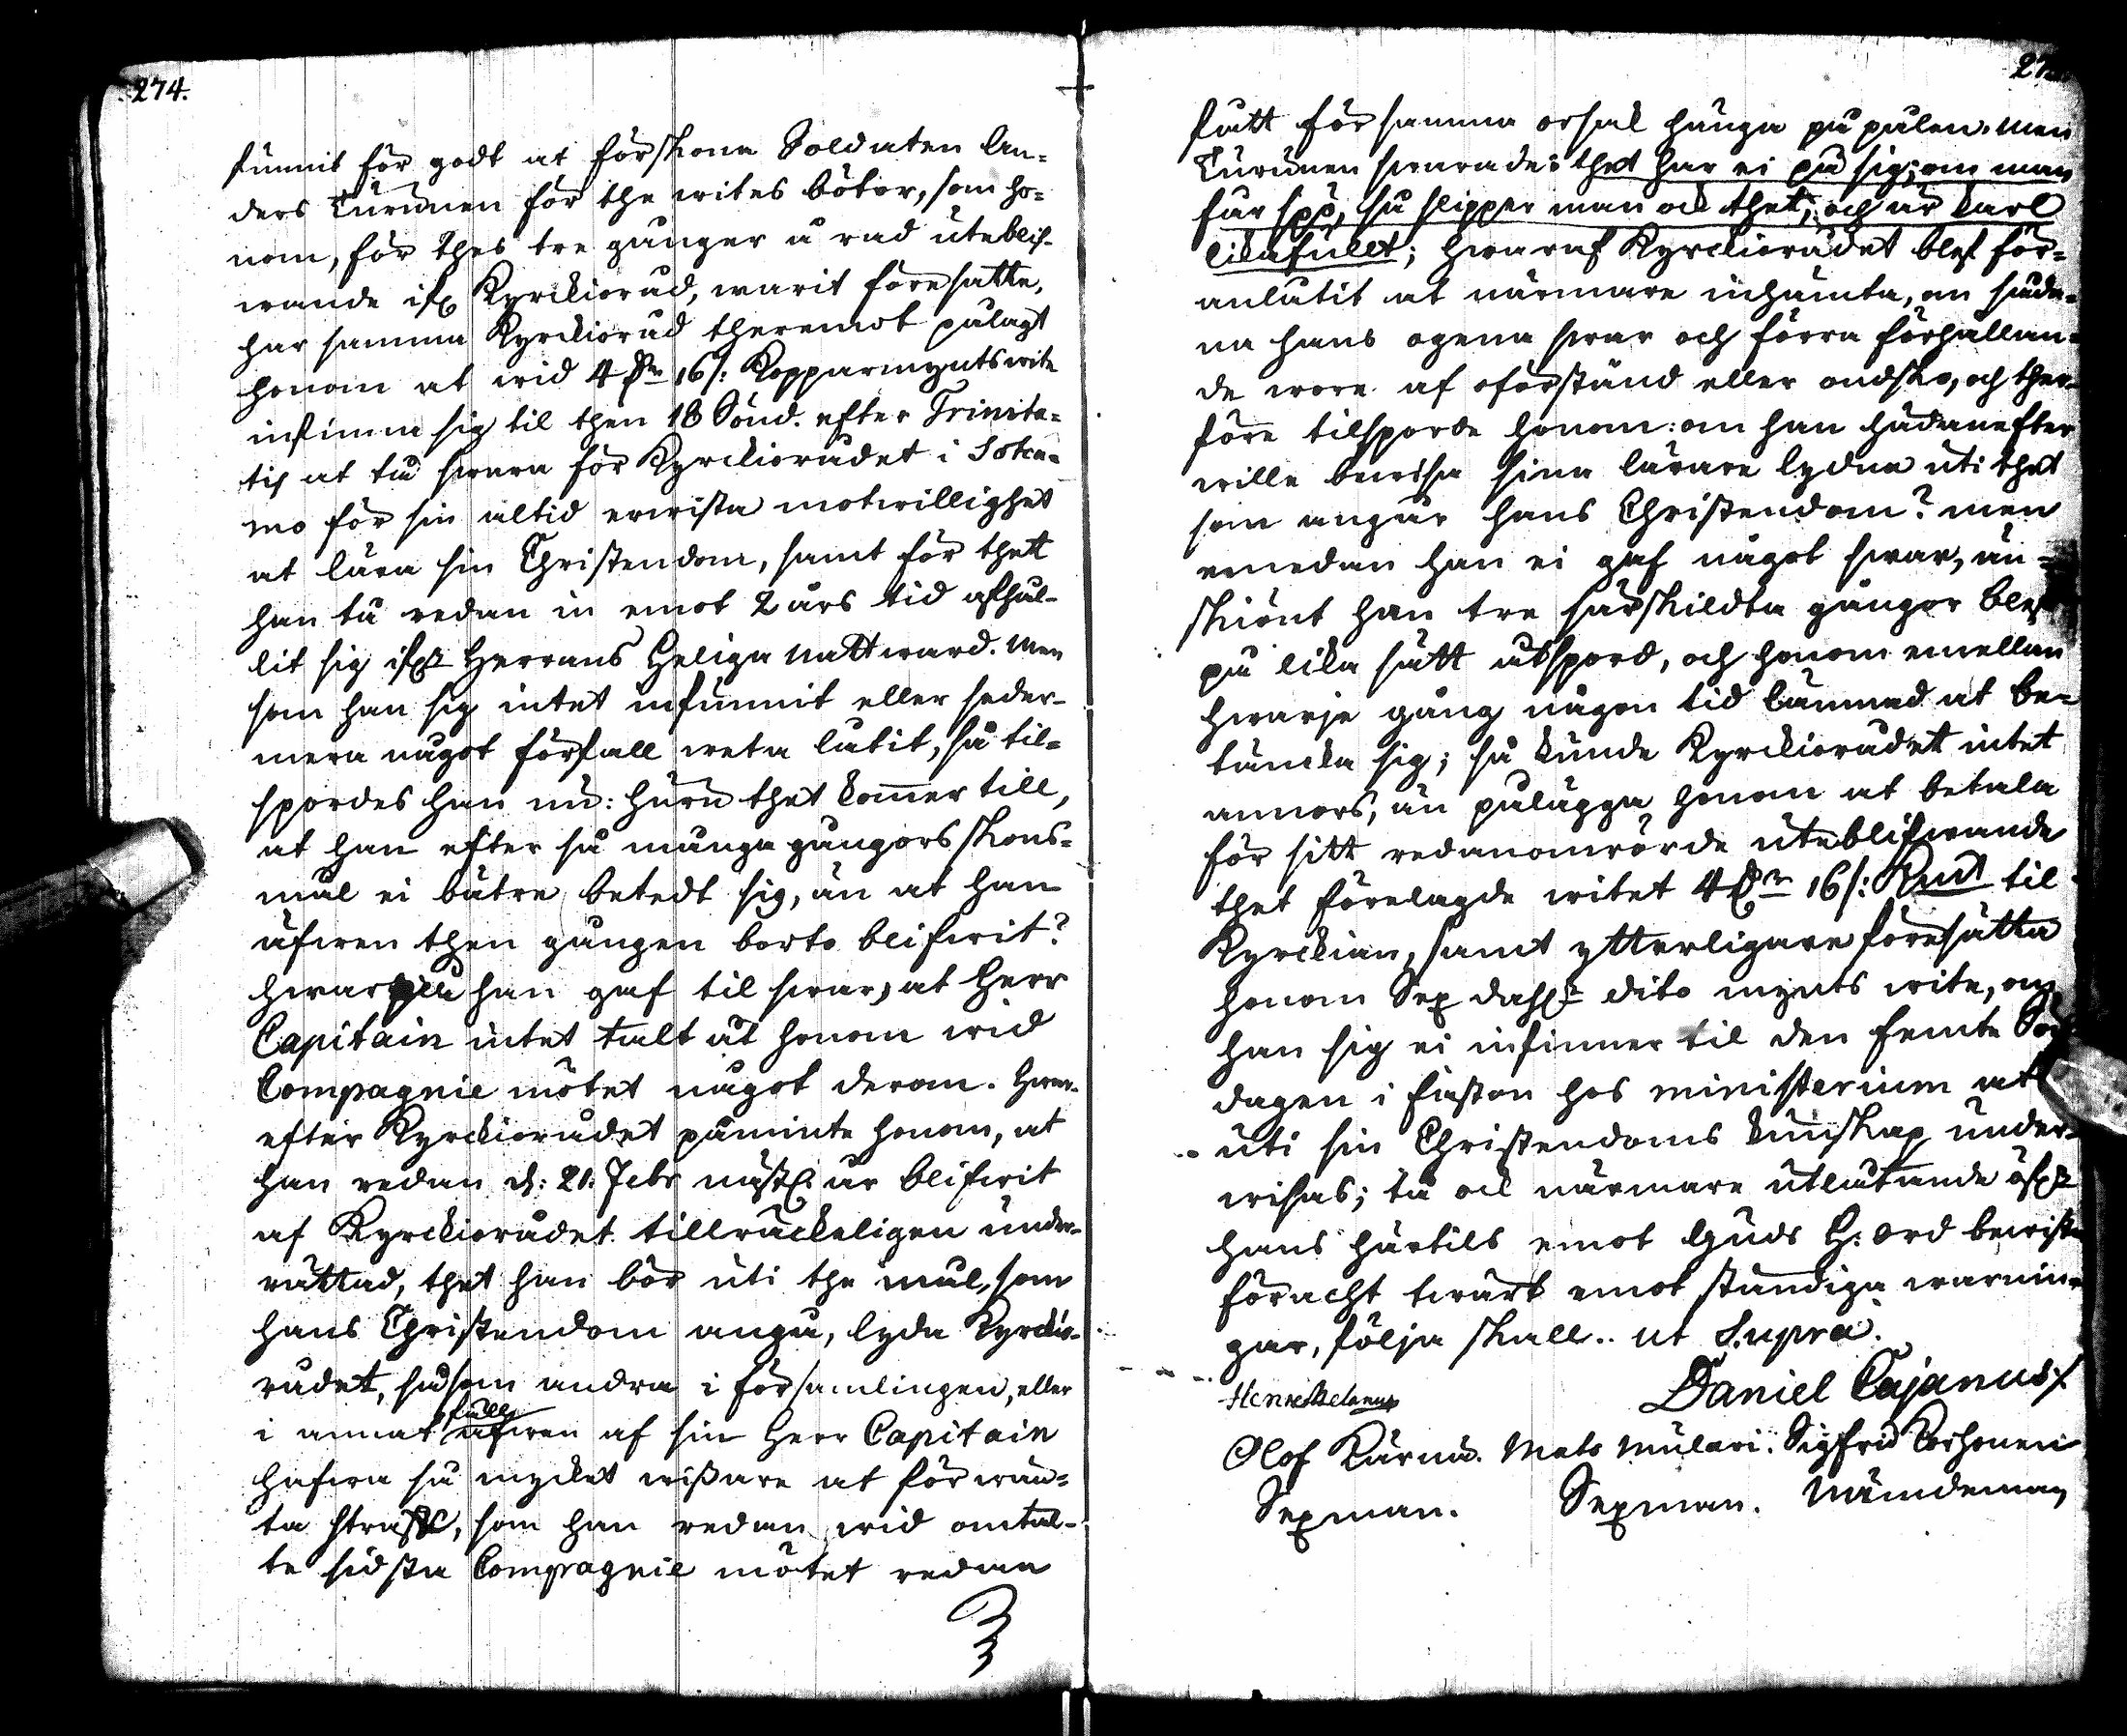 274.
funnit för godt at förskona Soldaten An-
ders Turunen för the wites böter, som ho-
nom, för thes tre gånger å rad uteblif-
wande ifr. Kyrckioråd, warit föresatte,
har samma Kyrckioråd theremot pålagt
honom at wid 4 Dr. 16 /: Kopparmynts wite
infinna sig til then 18 Sönd. efter Trinita-
tis at tå swara för Kyrckiorådet i Sotka-
mo för sin altid erwista motwillighet
at lära sin Christendom, samt för thett
han tå redan in emot 2 års tid afhål-
lit sig ifrn Herrans Heliga Nattward. Men
som han sig intet infunnit eller seder-
mera något förfall weta låtit, så til-
spordes han nu: huru thet kommer till,
at han efter så många gångors skons-
mål ei bätre betedt sig, än at han
äfwen then gången borto blifwit?
hwarpå han gaf til swar, at Herr
Capitain intet talt åt honom wid
Compagnie mötet något derom. Hwar-
efter Kyrckiorådet påminte honom, at
han redan d: 21. Febr nästl. år blifwit
af Kyrckiorådet tillräckeligen under-
rättad, thet han bör uti the mål, som
hans Christendom angå, lyda Kyrckio-
rådet, såsom andra i församlingen, eller
i annat fall äfwen af sin Herr Capitain
hafwa så mycket wißare at förwän-
ta straff, som han redan wid omtal-
te sidsta Compagnie mötet redan
27
fått för samma orsak hänga på pålen. Men
Turunen swarade: thet har ei på sig; om man
får spö, så slipper man ock thet; och är karl
likafullt; hwaraf Kyrckiorådet blef för-
anlåtit at närmare inhämta, om såda-
na hans ogena swar och förra förhållan-
de wore af oförstånd eller ondsko, och ther-
före tilsporde honom: om han hädanefter
wille bewisa sina lärare lydna uti thet
som angår hans Christendom? men
emedan han ei gaf något swar, än-
skiönt han tre särskildta gångor blef
på lika sätt utspord, och honom emellan
hwarje gång någon tid lämnad at be-
täncka sig; så kunde Kyrckiorådet intet
annors, än pålägga honom at betala
för sitt redanomrörde uteblifwande
thet förelagde witet 4 Dr. 16 /: Kmt til
Kyrckian, samt ytterligare föresätta
honom Sex dahlr dito mynts wite, om
han sig ei infinner til den femte Sön
dagen i fastan hos Ministerium att
uti sin Christendoms kunskap under-
wisas; tå ock närmare utlåtande öfwer
hans härtils emot Guds H: Ord bewista
föracht twärt emot ständiga warnin-
gar, följa skall.. ut Supra.
Daniel Cajanus /.
Olof Kärnä. Mats Mulari. Sigfrid Korhonen
Sexman. Sexman. Nämndeman